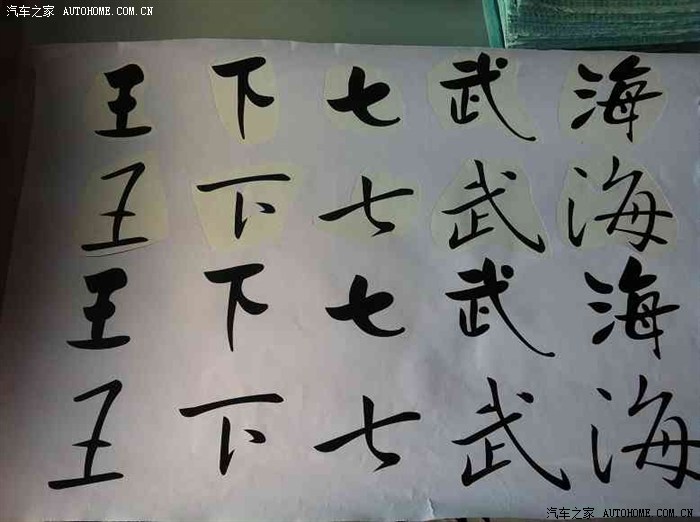 汽车之家 AUTOHOME.COM.CN
王下七武海
王下七武海
王下七武海
王下七武海
汽车之家 AUTOHOME.COM.CN